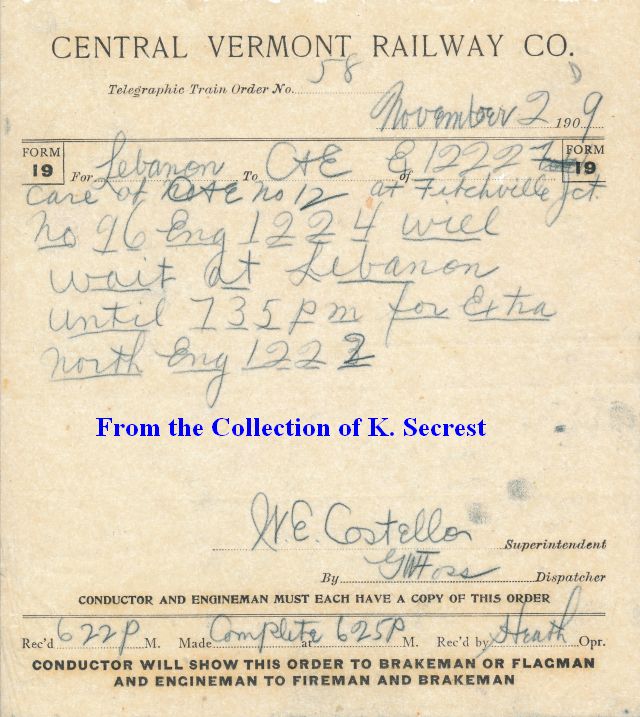 CENTRAL VERMONT RAILWAY CO.
Telegraphic Train Order No. 58
November 2 1909
FORM 19 For Lebanon To C+E of E 1222 FORM 19
care of C+E no 12 at Fitchville Jct.
no 96 Eng 1224 will
wait at Lebanon
until 735 pm for Extra
north Eng 1222
From the Collection of K. Secrest
W.E. Costello Superintendent
By GWFoss Dispatcher
CONDUCTOR AND ENGINEMAN MUST EACH HAVE A COPY OF THIS ORDER
Rec'd 622P M. Made Complete at 625P M. Rec'd by Heath Opr.
CONDUCTOR WILL SHOW THIS ORDER TO BRAKEMAN OR FLAGMAN
AND ENGINEMAN TO FIREMAN AND BRAKEMAN